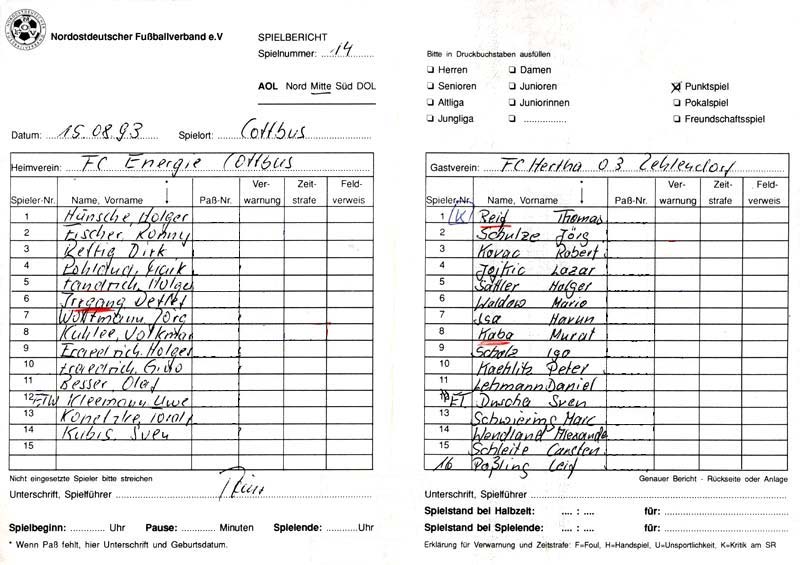 Nordostdeutscher Fußballverband e.V
SPIELBERICHT
Spielnummer: 14
AOL Nord Mitte Süd DOL
Datum: 15.08.93 Spielort: Cottbus
Heimverein: FC Energie Cottbus
Spieler-Nr. Name, Vorname Paß-Nr. Ver-warnung Zeit-strafe Feld-verweis
1 Hünsche, Holger
2 Fischer, Ronny
3 Rettig Dirk
4
5 Holger
6 Irrgang Detlef
7 Wottmann, Jörg
8 Volkmar
9 Holger
10 Guido
11 Besser, Olaf
12 ETW Kleemann, Uwe
13
14 Kubis, Sven
15
Nicht eingesetzte Spieler bitte streichen
Unterschrift, Spielführer
Spielbeginn: Uhr Pause: Minuten Spielende: Uhr
* Wenn Paß fehlt, hier Unterschrift und Geburtsdatum.
Bitte in Druckbuchstaben ausfüllen
Herren Damen
Senioren Junioren Punktspiel
Altliga Juniorinnen Pokalspiel
Jungliga Freundschaftsspiel
Gastverein: FC Hertha 03 Zehlendorf
Spieler-Nr. Name, Vorname Paß-Nr. Ver-warnung Zeit-strafe Feld-verweis
1 K Reiß Thomas
2 Schulze Jörg
3 Kovac Robert
4 Jojkic Lazar
5 Sattler Holger
6 Waldow Mario
7 Isa Harun
8 Kaba Murat
9 Scholz Igo
10 Kaehlitz Peter
11 Lehmann Daniel
12 ET Duscha Sven
13 Schwiering Marc
14 Wendland Alexander
15 Schleite Carsten
16 Paßling Leif
Genauer Bericht - Rückseite oder Anlage
Unterschrift, Spielführer
Spielstand bei Halbzeit: .... : .... für:
Spielstand bei Spielende: .... : .... für:
Erklärung für Verwarnung und Zeitstrafe: F=Foul, H=Handspiel, U=Unsportlichkeit, K=Kritik am SR